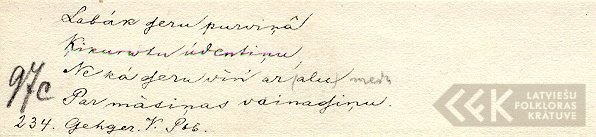 Labāk geru purviņā
Ķikurutu ūdentiņu
Ne kā geru viņ' ar (alu) medu
97c
Par māsiņas vainagiņu.
234. Gehger. V. Peb.
LATVIEŠU
FOLKLORAS
KRATUVE